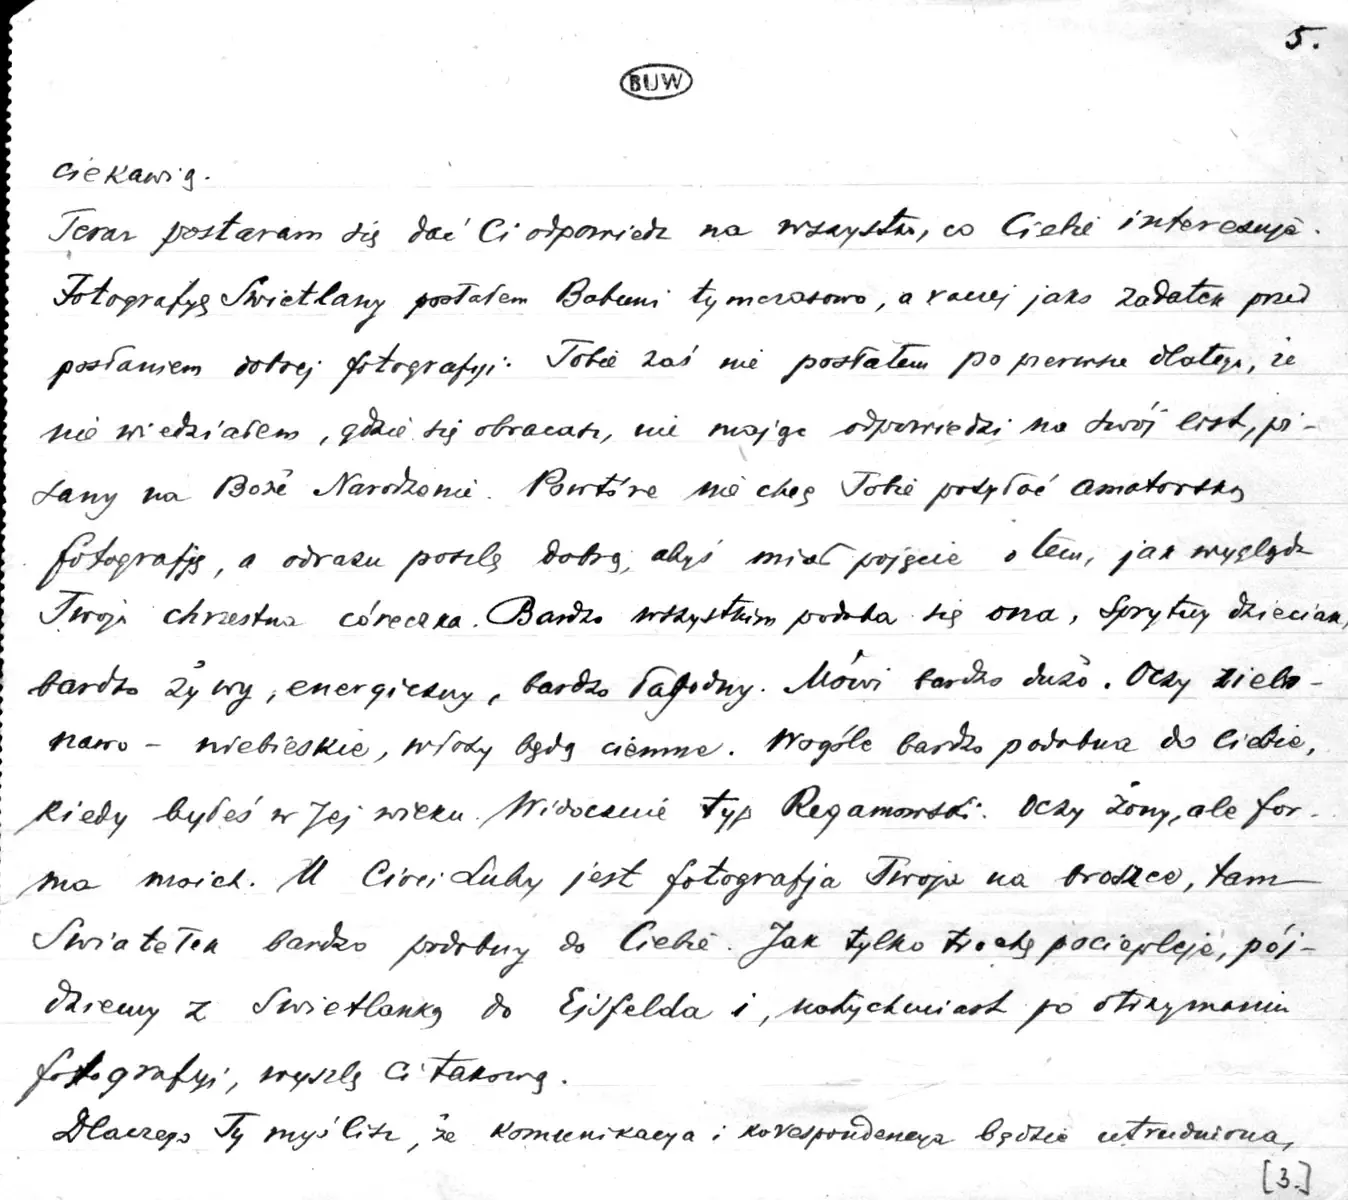 5.
BUW
ciekawią.
Teraz postaram się dać Ci odpowiedź na wszystko, co Ciebie interesuje.
Fotografję Swietlany posłałem Babuni tymczasowo, a raczej jako zadatek przed
posłaniem dobrej fotografji. Tobie zaś nie posłałem po pierwsze dlatego, że
nie wiedziałem, gdzie się obracasz, nie mając odpowiedzi na swój list, pi-
sany na Boże Narodzenie. Powtóre nie chcę Tobie posyłać amatorską
fotografję, a odrazu poszlę dobrą, abyś miał pojęcie o tem, jak wygląda
Twoja chrzestna córeczka. Bardzo wszystkim podoba się ona, sprytny dzieciak,
bardzo żywy, energiczny, bardzo łagodny. Mówi bardzo dużo. Oczy zielo-
nawo - niebieskie, włosy będą ciemne. Wogóle bardzo podobna do Ciebie,
kiedy byłeś w Jej wieku. Widocznie typ Regamowski. Oczy żony, ale for-
ma moich. U Cioci Luby jest fotografja Twoja na broszce, tam
Swiatełek bardzo podobny do Ciebie. Jak tylko trochę pociepleje, pój-
dziemy z Swietlanką do Ejsfelda i, natychmiast po otrzymaniu
fotografji, wyszlę Ci takową.
Dlaczego Ty myślisz, że komunikacja i korespondencja będzie utrudniona,
[3.]